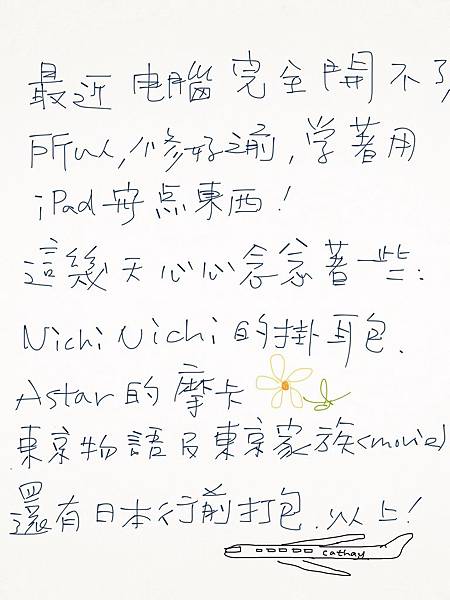 最近电腦完全開不了,
所以,修好之前,学著用
iPad 安点東西!
這幾天心心念念著一些:
Nichi Nichi 的掛耳包.
Astar 的摩卡
東京物語及東京家族(movie)
還有日本行前打包.以上!
cathay